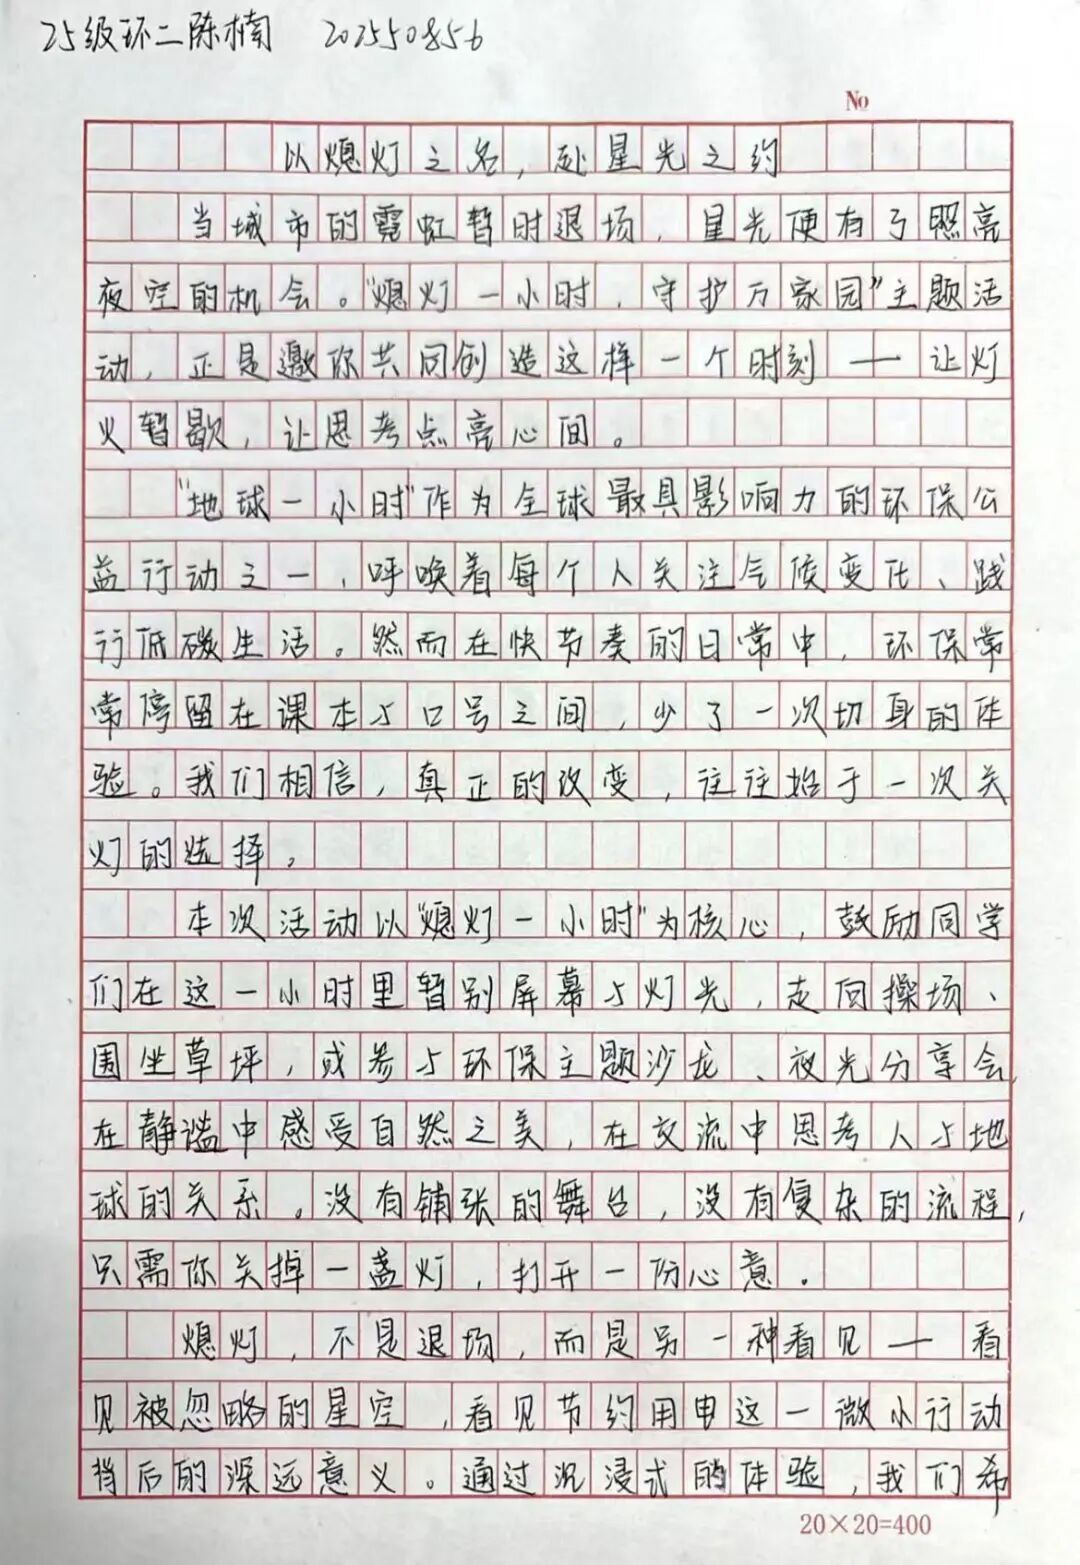 25级环二陈楠 202550856
No
以熄灯之名，赴星光之约
当城市的霓虹暂时退场，星光便有了照亮
夜空的机会。“熄灯一小时，守护万家园”主题活
动，正是邀你共同创造这样一个时刻——让灯
火暂歇，让思考点亮心间。
“地球一小时”作为全球最具影响力的环保公
益行动之一，呼唤着每个人关注气候变化、践
行低碳生活。然而在快节奏的日常中，环保常
常停留在课本与口号之间，少了一次切身的体
验。我们相信，真正的改变，往往始于一次关
灯的选择。
本次活动以“熄灯一小时”为核心，鼓励同学
们在这一小时里暂别屏幕与灯光，走向操场、
围坐草坪，或参与环保主题沙龙、夜光分享会，
在静谧中感受自然之美，在交流中思考人与地
球的关系。没有铺张的舞台，没有复杂的流程，
只需你关掉一盏灯，打开一份心意。
熄灯，不是退场，而是另一种看见——看
见被忽略的星空，看见节约用电这一微小行动
背后的深远意义。通过沉浸式的体验，我们希
20×20=400